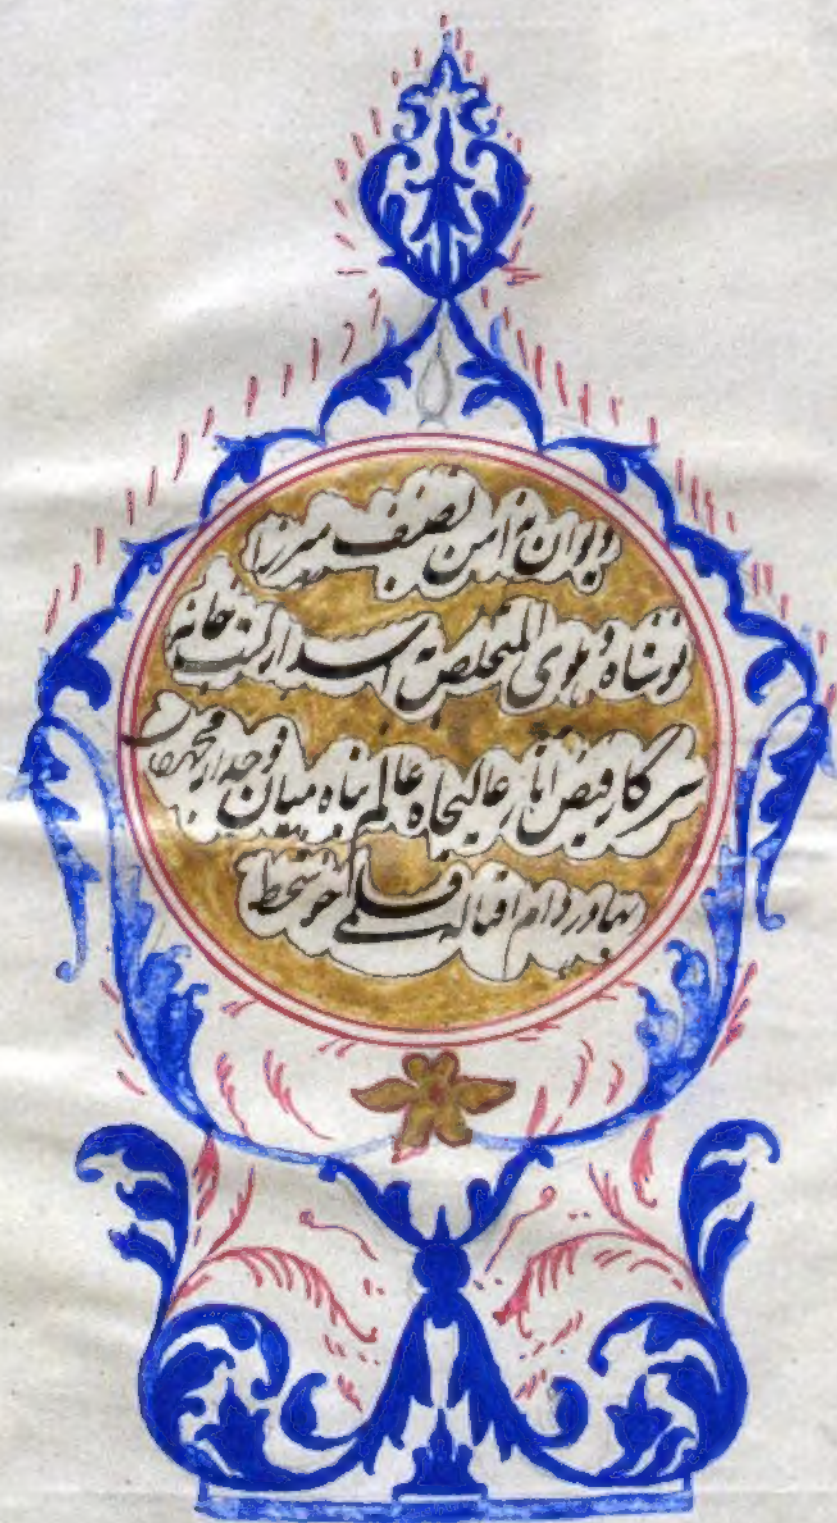 دیوان ہذا من تصنیف میرزا
نوشاه دہلوی المتخلص بہ اسد از کتب خانہ
سرکار فیض آثار عالیجاه عالم پناه میان فوجدار محمد خان
بہادر دام اقبالہ قلمی خوشخط